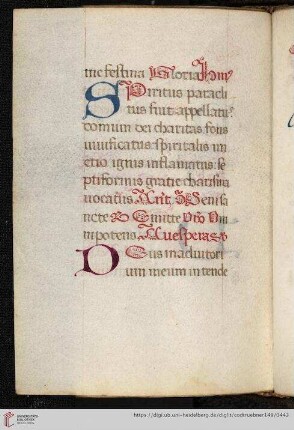 me festina Gloria Hym
Spiritus paracli
tus fuit appellatu
donum dei charitas fons
viuificatus spiritalis un
ctio ignis inflamatus se
ptiformis gratie charisma
vocatus Añt Veni sa
ncte Emitte Oro Om
nipotens Ad vesperas
Deus in adiutori
um meum intende
https://digi.ub.uni-heidelberg.de/diglit/codtruebner149/0443
UNIVERSITÄTS-
BIBLIOTHEK
HEIDELBERG